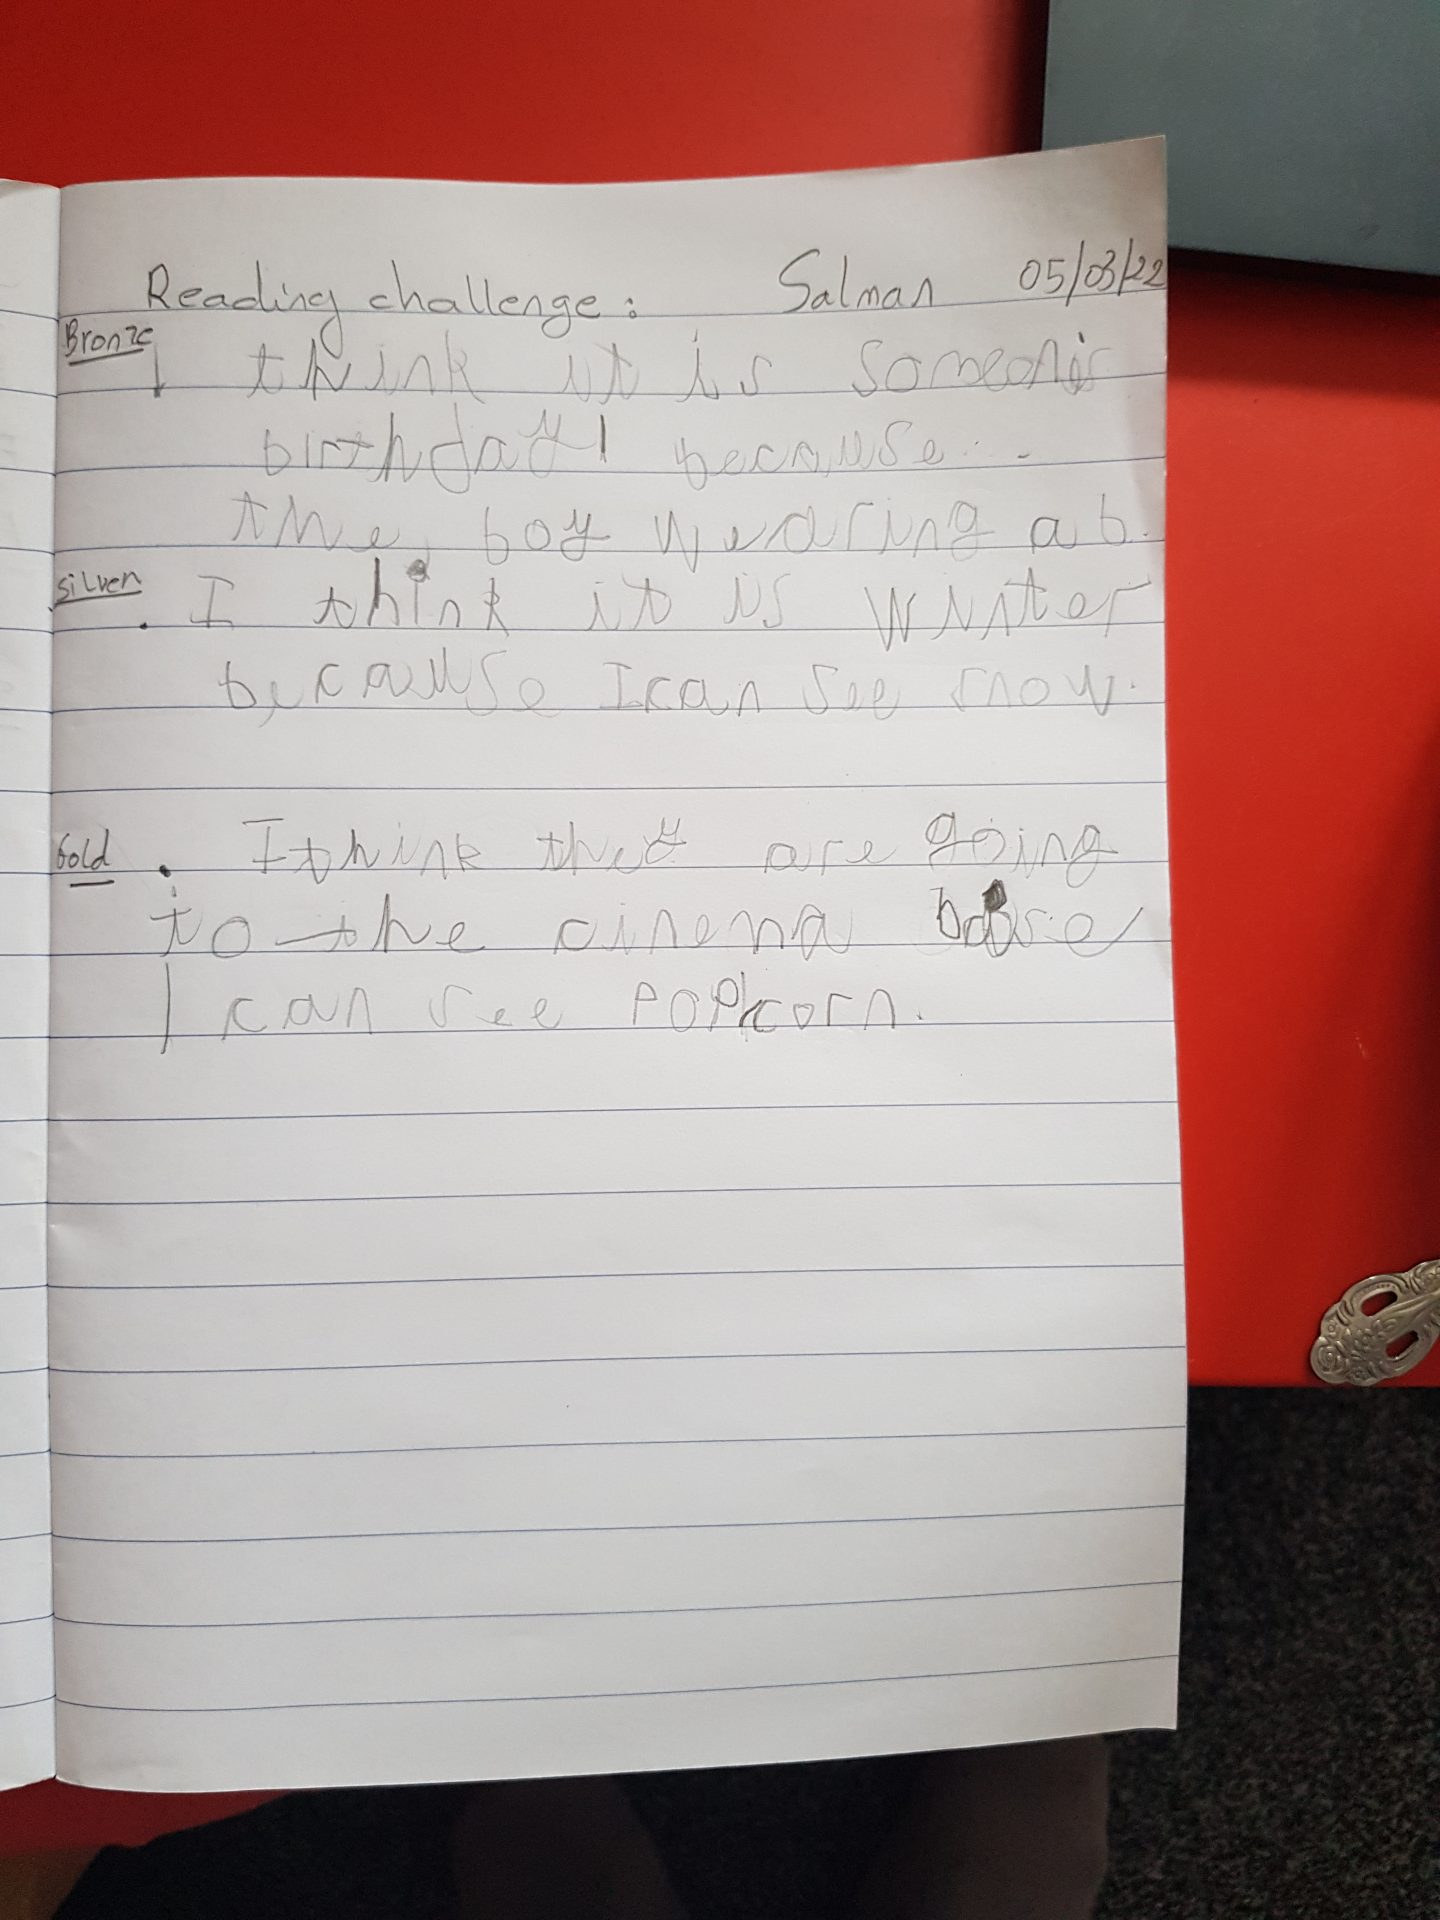 Reading challenge: Salman 05/03/22
Bronze
I think it is someone's
birthday because...
the boy wearing a b.
Silver
. I think it is winter
because I can see snow.
Gold
. I think they are going
to the cinema
I can see popcorn.